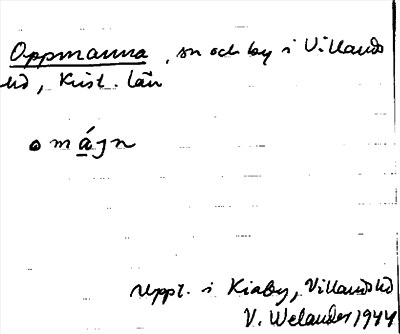 Oppmanna, sn och by i Villands
hd, Krist. län
o m á j n
Uppt. i Kiaby, Villands hd
V. Welander 1944